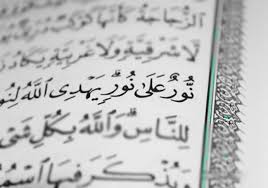 ٱلزُّجَاجَةُ كَأَنَّهَا كَوْ
لَّا شَرْقِيَّةٍ وَلَا غَرْبِيَّةٍ يَكَادُ
نُّورٌ عَلَىٰ نُورٍ يَهْدِى ٱللَّهُ لِنُو
لِلنَّاسِ وَٱللَّهُ بِكُلِّ شَىْ
وَيُذْكَرَ فِيهَا ٱسْمُ